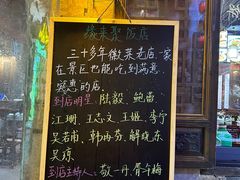 缘来聚饭店
三十多年徽菜老店一家
在景区也能吃到满意
实惠的店.
到店明星: 陆毅 鲍蕾
江珊 王志文 王姬 李宁
吴若甫 韩再芬 解晓东
吴琼
到店主持人: 敬一丹 胥午梅